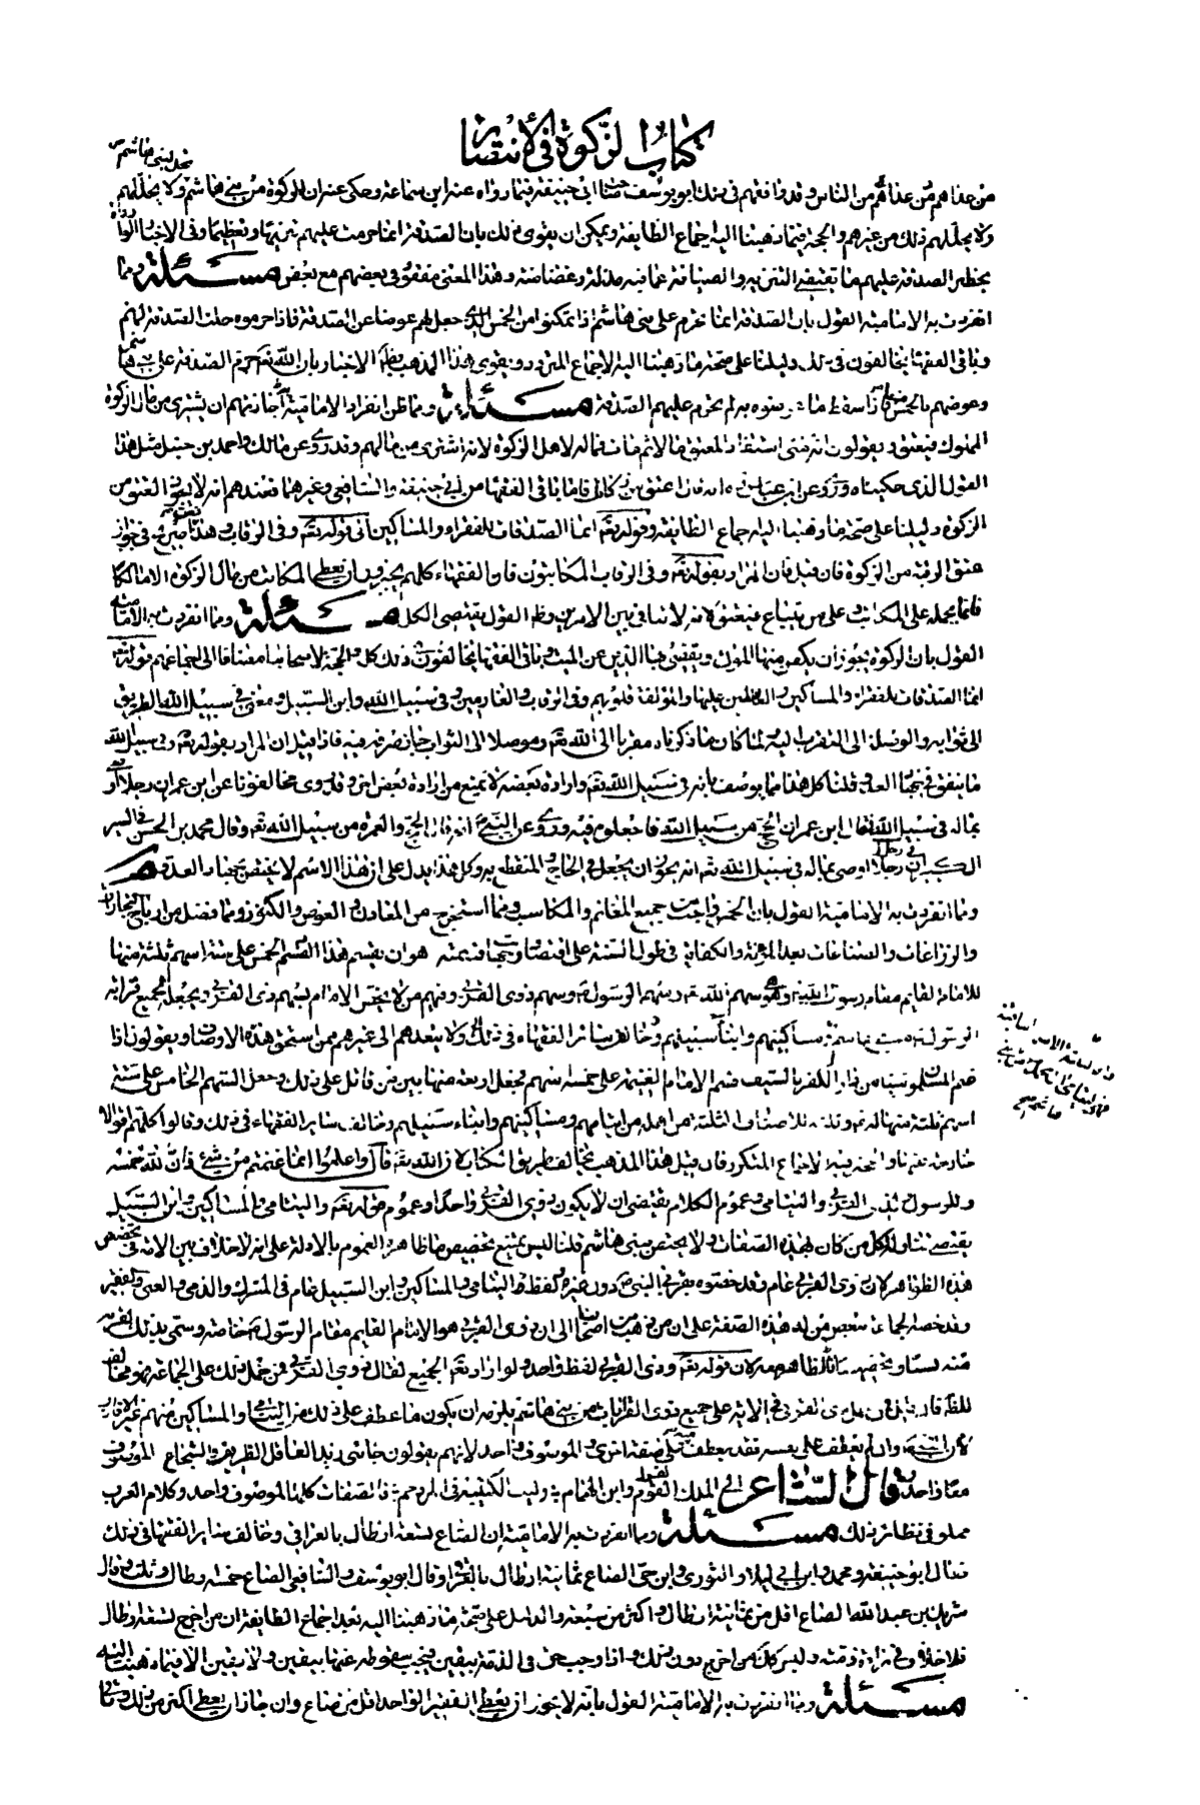 كتاب الزكوة في الانتصار
تحل لبني هاشم
من عداهم من الناس وقد وافقهم في ذلك ابو يوسف صاحب ابي حنيفة فيما رواه عنه ابن سماعة وحكى عنه ان الزكوة من بني هاشم ولا يحل لهم
ولا يحل لهم ذلك من غيرهم والحجة فيما ذهبنا اليه اجماع الطايفة ويمكن ان يقوى ذلك بان الصدقة انما حرمت عليهم تنزيها وتعظيما وفي الاخبار الواردة
بحظر الصدقة عليهم ما يقتضي التنزيه والصيانة عما فيه مذلة وغضاضة وهذا المعنى مفقود في بعضهم مع بعض مسئلة ومما
انفردت به الامامية القول بان الصدقة انما تحرم على بني هاشم اذا تمكنوا من الخمس الذي جعل لهم عوضا عن الصدقة فاذا حرموه حلت الصدقة لهم
وباقي الفقها يخالفون في ذلك دليلنا على صحة ما ذهبنا اليه الاجماع المتردد ويقوى هذا المذهب بظاهر الاخبار بان الله تعالى حرم الصدقة على بني هاشم
وعوضهم بالخمس منها فاذا سقط ما عوضوه به لم تحرم عليهم الصدقة مسئلة ومما ظن انفراد الامامية به اجازتهم ان يشترى من مال الزكوة
المملوك فيعتق ويقولون انه متى استفاد المعتق مالا ثم مات فماله لاهل الزكوة لانه اشتري من مالهم وقد روي عن مالك واحمد بن حنبل مثل هذا
القول الذي حكيناه وروي عن ابن عباس انه قال اعتق من زكاة مالك فاما باقي الفقها من ابي حنيفة والشافعي وغيرهما فعندهم انه لا يجوز العتق من
الزكوة دليلنا على صحة ما ذهبنا اليه اجماع الطايفة وقوله تعالى انما الصدقات للفقراء والمساكين الى قوله تعالى وفي الرقاب وهذا نص صريح في جواز
عتق الرقبة من الزكوة فان قيل فان المراد بقوله تعالى وفي الرقاب المكاتبون فان الفقهاء كلهم يجيزون ان يعطى المكاتب من مال الزكوة الا مالكا
فانما نحمله على المكاتب وعلى من يبتاع فيعتق لانه لا تنافي بين الامرين وظاهر القول يقتضي الكل مسئلة ومما انفردت به الامامية
القول بان الزكوة يجوز ان يكفن منها الموتى ويقضى بها الدين عن الميت وباقي الفقها يخالفون في ذلك كله والحجة لاصحابنا مضافا الى اجماعهم قوله تعالى
انما الصدقات للفقراء والمساكين والعاملين عليها والمؤلفة قلوبهم وفي الرقاب والغارمين وفي سبيل الله وابن السبيل ومعنى في سبيل الله الطريق
الى ثوابه والوصلة الى التقرب اليه لما كان ما ذكرناه مقربا الى الله تعالى وموصلا الى الثواب جاز صرفه فيه فاذا قيل ان المراد بقوله تعالى وفي سبيل الله
ما ينفق في جهاد العدو قلنا كل هذا مما يوصف بانه في سبيل الله تعالى وارادة بعضه لا تمنع من ارادة بعض اخر وقد روى مخالفونا عن ابن عمر ان رجلا اوصى
بماله في سبيل الله فقال ابن عمر ان الحج من سبيل الله فاجعلوه فيه وروي عن النبي انه قال الحج والعمرة من سبيل الله تعالى وقال محمد بن الحسن في السير
الكبير ان رجلا اوصى بماله في سبيل الله تعالى انه يجوز ان يجعل في الحاج المنقطع به وكل هذا يدل على ان هذا الاسم لا يختص جهاد العدو مسئلة
ومما انفردت به الامامية القول بان الخمس واجب في جميع المغانم والمكاسب ومما استخرج من المعادن والغوص والكنوز ومما فضل من ارباح التجارات
والزراعات والصناعات بعد المؤنة والكفاية في طول السنة على اقتصاد وجهات قسمته هو ان يقسم هذا الخمس على ستة اسهم ثلثة منها
للامام القايم مقام رسول الله وهي سهم الله تعالى وسهم الرسول وسهم ذوي القربى ومنهم من لا يخص الامام بسهم ذي القربى ويجعله لجميع قرابة
الرسول من بني هاشم ومساكينهم وابناء سبيلهم وخالف ساير الفقهاء في ذلك ولا يتعداهم الى غيرهم ممن استحق هذه الاوصاف ويقولون اذا
غنم المسلمون شيئا من دار الكفر بالسيف قسم الامام الغنيمة على خمسة اسهم فجعل اربعة منها بين من قاتل على ذلك وجعل السهم الخامس على ستة
اسهم ثلثة منها له وثلثة للاصناف الثلثة من اهله من ايتامهم ومساكينهم وابناء سبيلهم وخالف ساير الفقهاء في ذلك وقالوا كلهم اقوالا
خارجة عنه والحجة فيه الاجماع المتكرر فان قيل هذا المذهب يخالف ظاهر الكتاب لان الله تعالى قال واعلموا انما غنمتم من شئ فان لله خمسه
وللرسول ولذي القربى واليتامى وعموم الكلام يقتضي ان لا يكون ذوي القربى واحدا وعموم قوله تعالى واليتامى والمساكين وابن السبيل
يقتضي تناوله لكل من كان بهذه الصفات ولا يختص ببني هاشم قلنا ليس يمتنع تخصيص ما ظاهره العموم بالادلة على انه لا خلاف بين الامة في تخصيص
هذه الظواهر لان ذوي القربى عام وقد خصوه بقربى النبي دون غيره ولفظ اليتامى والمساكين وابن السبيل عام في المشرك والذمي والغني والفقير
وقد خصه الجماعة ببعض من له هذه الصفة على ان من ذهب من اصحابنا الى ان ذوي القربى هو الامام القايم مقام الرسول خاصة وسمي بذلك لقربه
منه نسبا وتخصيصا فالظاهر معه لان قوله تعالى وذي القربى لفظ واحد ولو اراد تعالى الجميع لقال ذوي القربى فمن حمل ذلك على الجماعة فهو مخالف
للظاهر فان قيل فمن حمل ذي القربى في الاية على جميع ذوي القرابات من بني هاشم يلزمه ان يكون ما عطف على ذلك من اليتامى والمساكين منهم غير الاقارب
لان الشيء وان لم يعطف على نفسه فقد يعطف صفة على صفة اخرى والموصوف واحد لانهم يقولون جاءني زيد العاقل الظريف والشجاع الموصوف
معا واحد قال الشاعر الى الملك القرم وابن الهمام وليث الكتيبة في المزدحم والصفات كلها لموصوف واحد وكلام العرب
مملو في نظائر ذلك مسئلة ومما انفردت به الامامية ان الصاع تسعة ارطال بالعراقي وخالف ساير الفقها في ذلك
فقال ابو حنيفة ومحمد وابن ابي ليلى والثوري وابن حي الصاع ثمانية ارطال بالعراقي وقال ابو يوسف والشافعي الصاع خمسة ارطال وثلث وقال
شريك بن عبد الله الصاع اقل من ثمانية ارطال واكثر من سبعة والدليل على صحة ما ذهبنا اليه بعد اجماع الطايفة ان من اخرج تسعة ارطال
فلا خلاف في براءة ذمته وليس كذلك من اخرج دون ذلك واذا وجب حق في الذمة بيقين فيجب سقوطه عنها بيقين ولا يقين الا فيما ذهبنا اليه
مسئلة ومما انفردت به الامامية القول بانه لا يجوز ان يعطى الفقير الواحد اقل من صاع وان جاز ان يعطى اكثر من ذلك وباقي